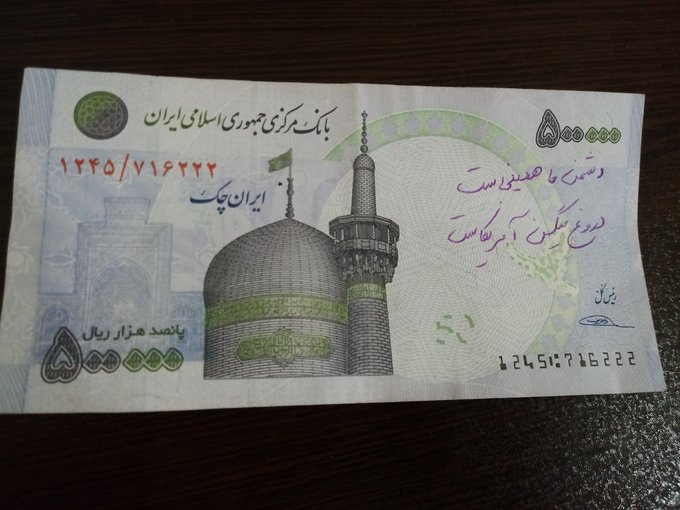 بانک مرکزی جمهوری اسلامی ایران
۵۰۰۰۰۰
۱۲۴۵/۷۱۶۲۲۲
ایران چک
دشمن ما همینجاست
دروغ میگن آمریکاست
رئیس کل
پانصد هزار ریال
۵۰۰۰۰۰
1245 716222